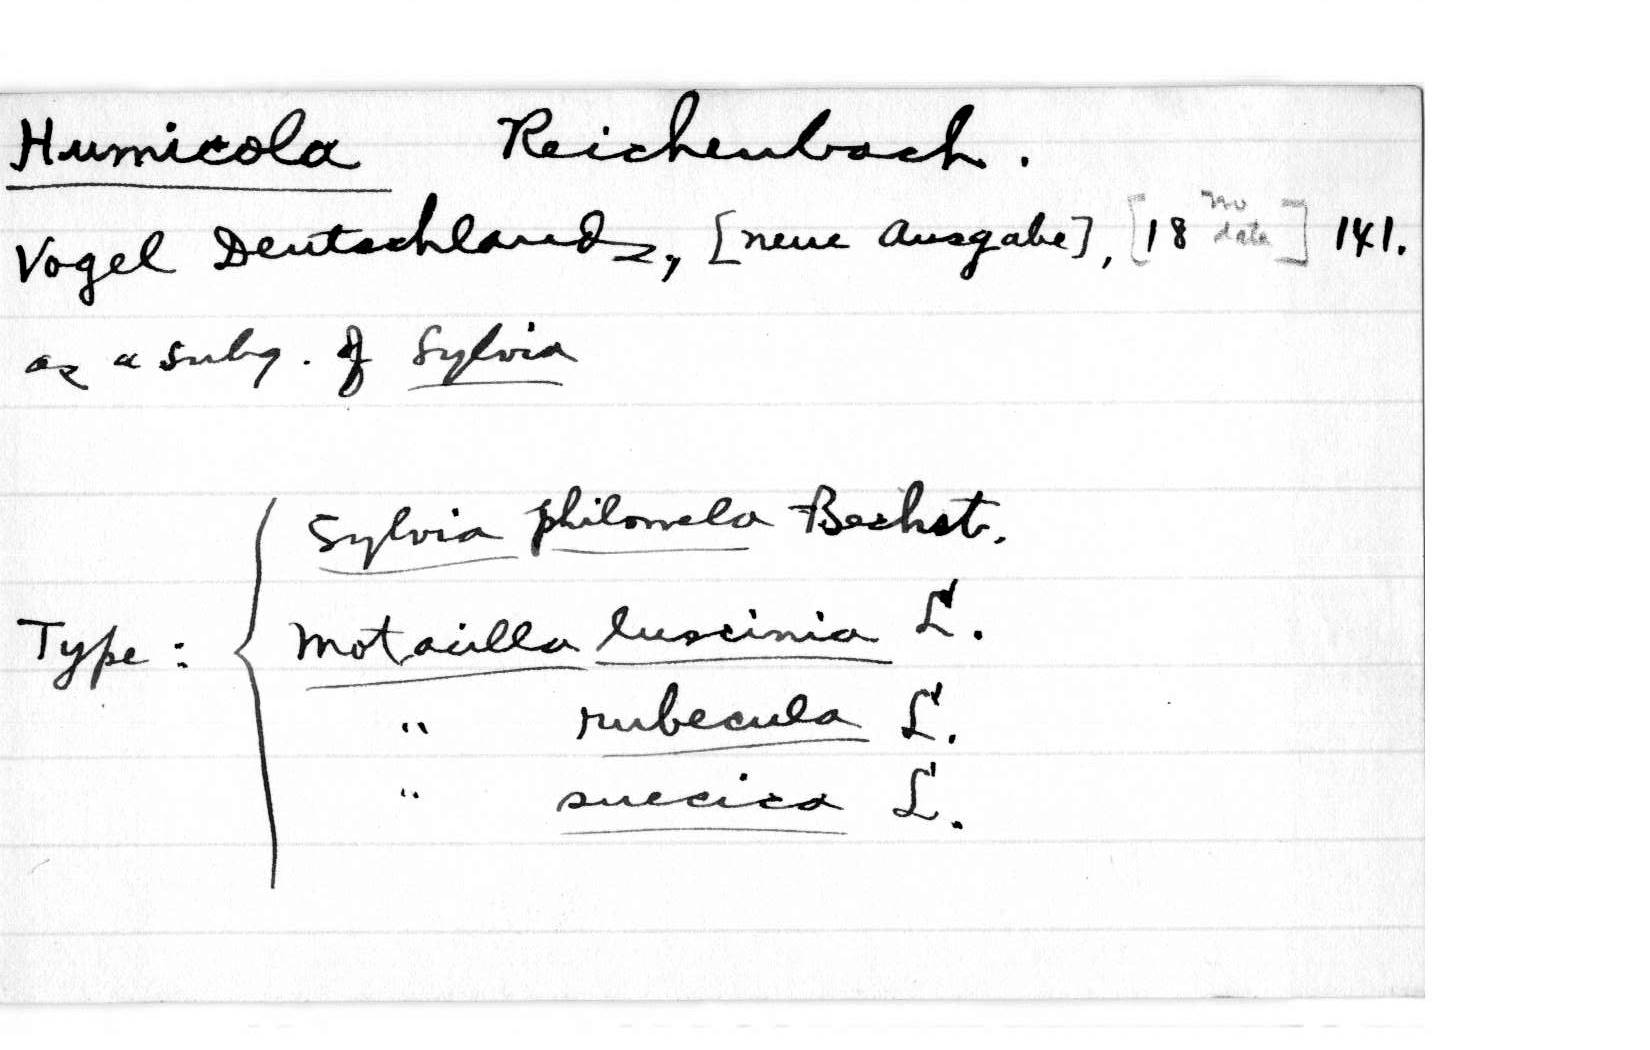 Humicola Reichenbach.
Vogel Deutschlands, [neue Ausgabe], [18 no date] 141.
as a subg. of Sylvia
Sylvia philomela Bechst.
Type: Motacilla luscinia L.
" rubecula L.
" suecica L.